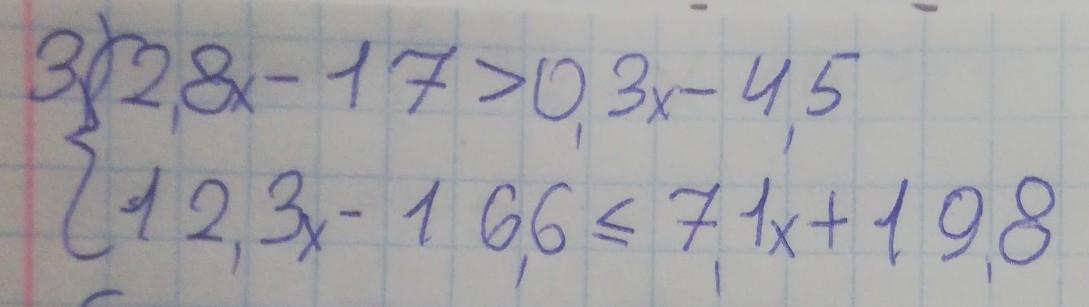 3) { 2,8x - 17 > 0,3x - 4,5
12,3x - 16,6 ≤ 7,1x + 19,8